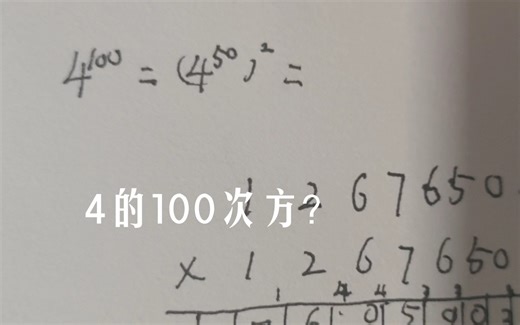 4¹⁰⁰ = (4⁵⁰)² =
1 2 6 7 6 5 0
4的100次方?
× 1 2 6 7 6 5 0